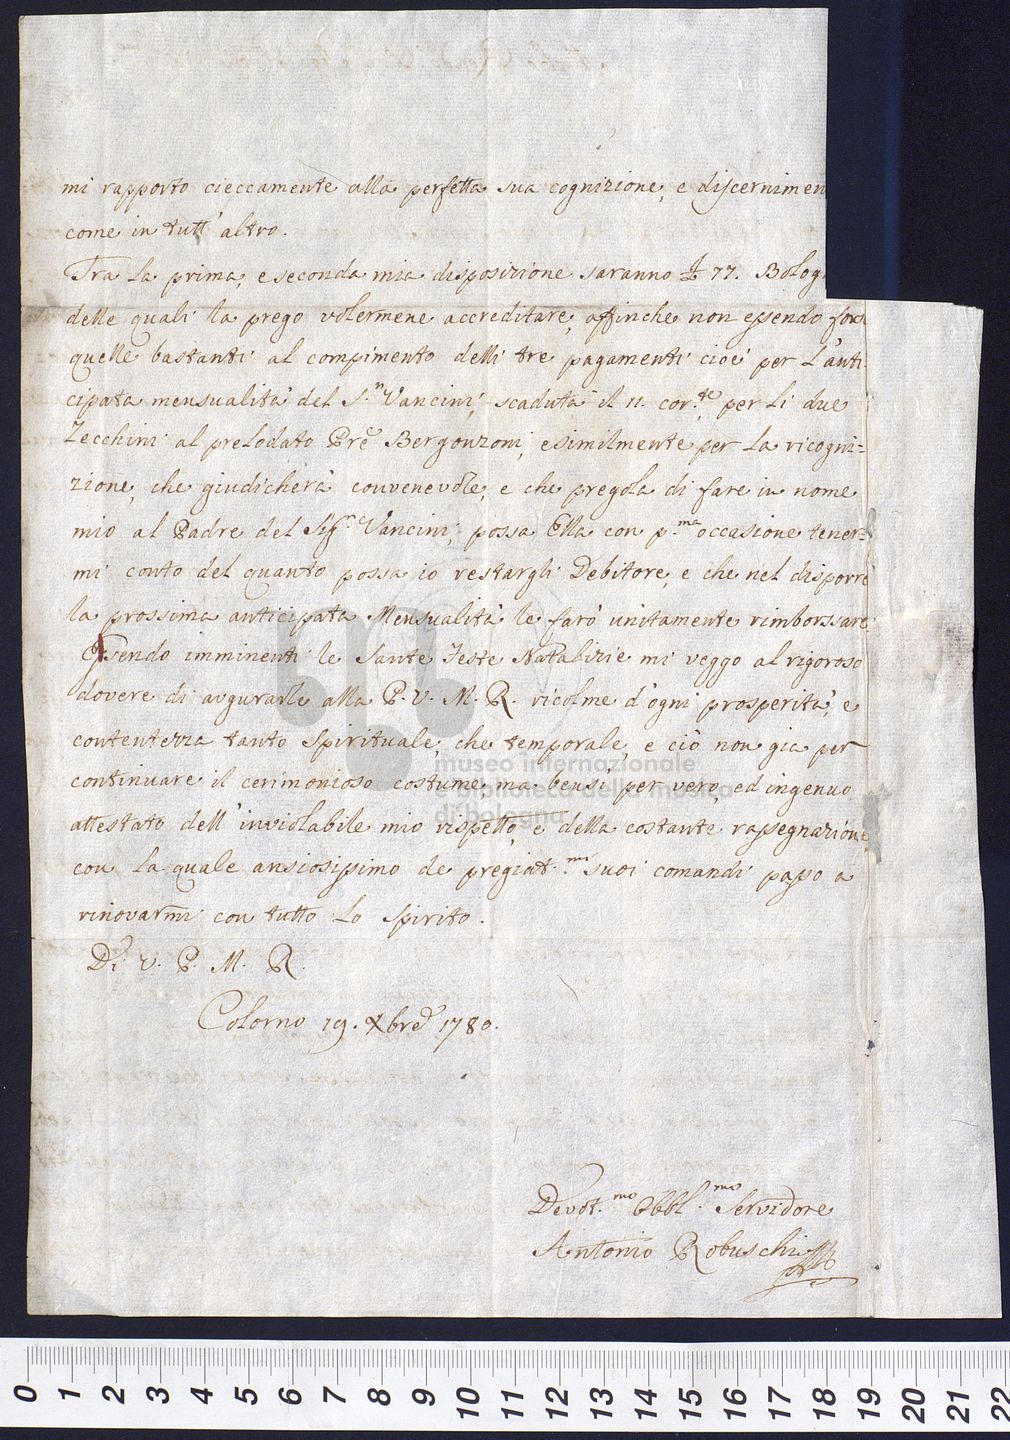 mi rapporto cieccamente alla perfetta sua cognizione, e discernimen
come in tutt' altro.
Tra la prima, e seconda mia disposizione saranno £ 77. Bolog
delle quali la prego volermene accreditare, affinche non essendo fors
quelle bastanti al compimento delli tre pagamenti cioè per l'anti-
cipata mensualità del S.r Vancini, scaduta il 11. cor.te, per li due
Zecchini al prelodato Pre Bergonzoni, e similmente per la ricogni=
zione, che giudicherà convenevole, e che pregola di fare in nome
mio al Padre del Sig.r Vancini, possa Ella con p.ma occasione tener=
mi conto del quanto possa io restargli Debitore, e che nel disporre
la prossima anticipata Mensualità le farò unitamente rimborssare
Essendo imminenti le Sante Feste Natalizie mi veggo al rigoroso
dovere di avgurarle alla P. V. M. R. ricolme d'ogni prosperità, e
contentezza tanto Spirituale, che temporale, e ciò non già per
continuare il cerimonioso costume, ma bensi per vero, ed ingenuo
attestato dell' inviolabile mio rispetto, e della costante rassegnazione
con la quale ansiosissimo de pregiat.mi suoi comandi passo a
rinovarmi con tutto lo Spirito.
Di V. P. M. R.
Colorno 19. Xbre 1780.
Devot.mo Obbl.mo Servidore
Antonio Robuschi
museo internazionale
e biblioteca della musica
di bologna
0 1 2 3 4 5 6 7 8 9 10 11 12 13 14 15 16 17 18 19 20 21 22